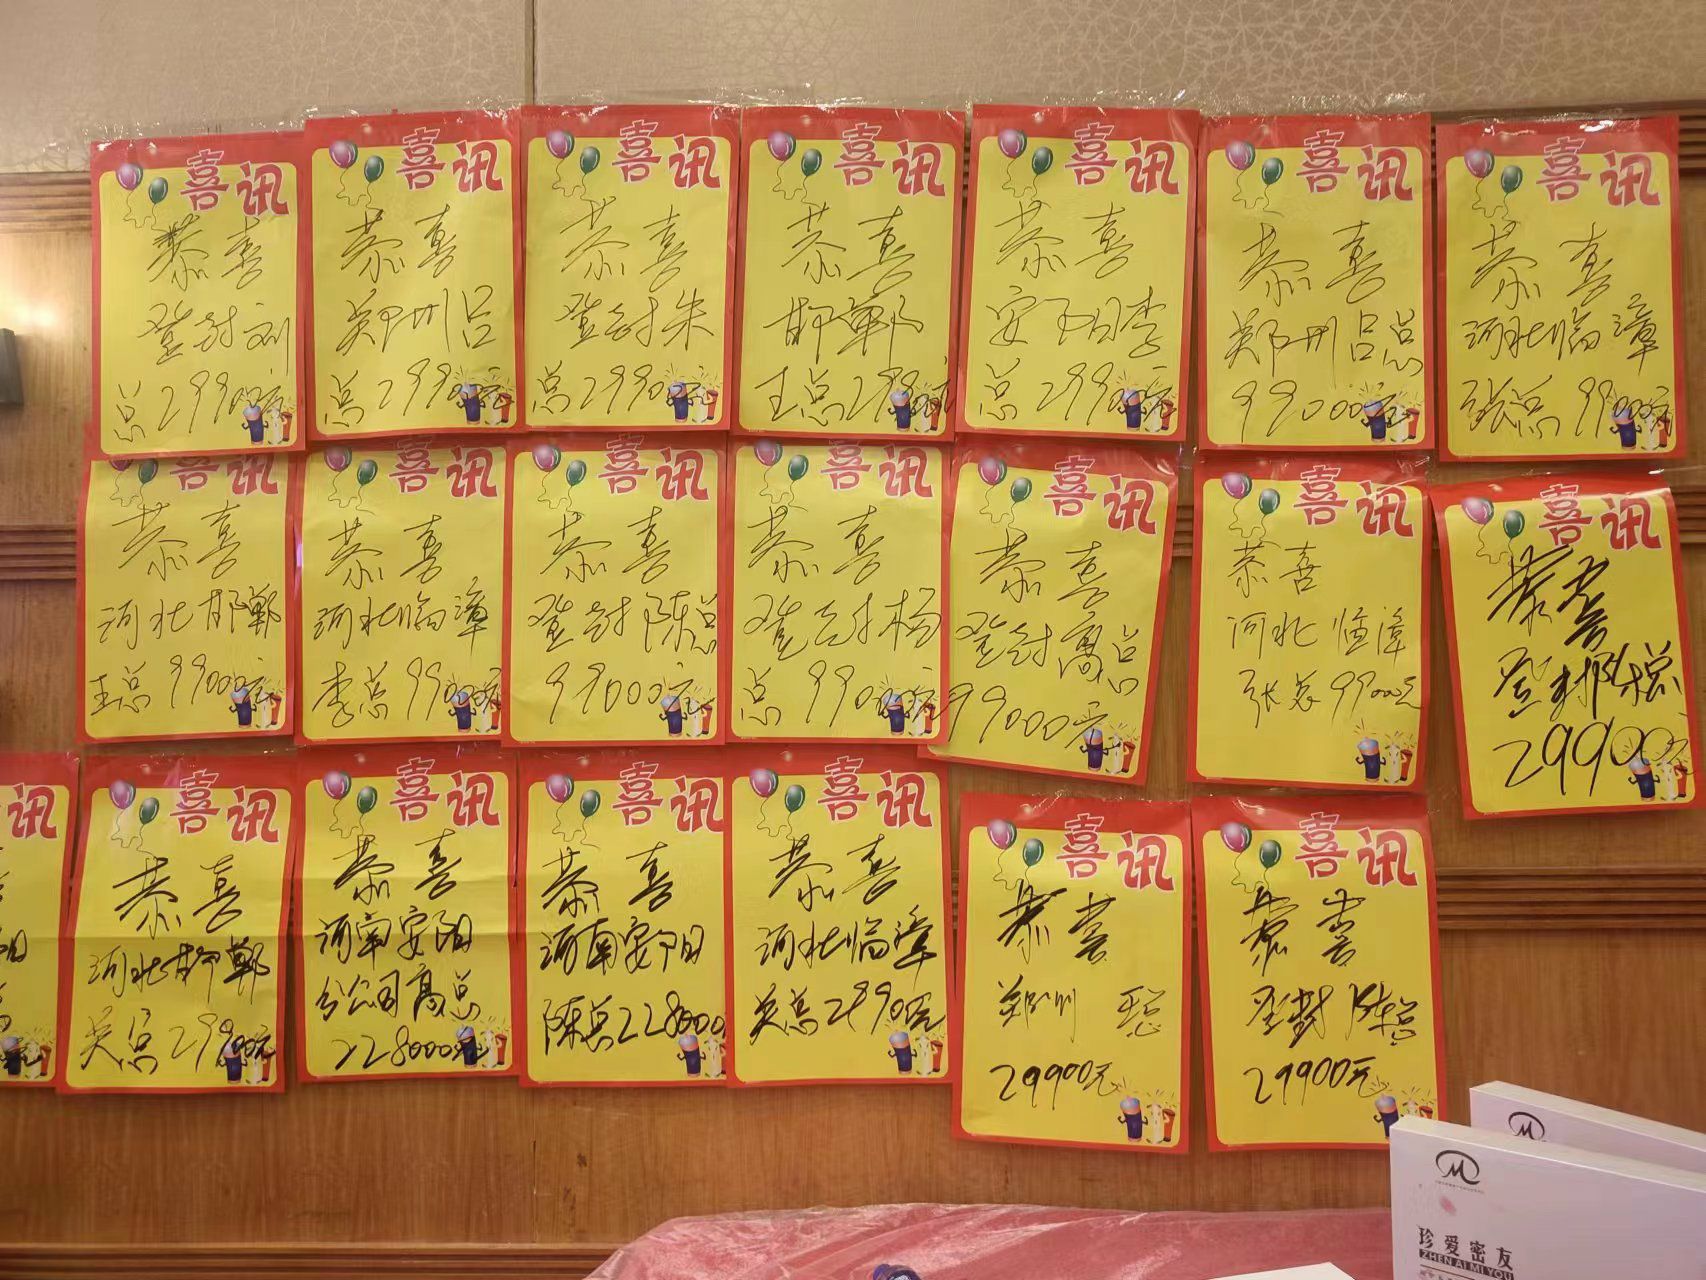 喜讯
恭喜
登封刘
总29900元
喜讯
恭喜
郑州吕
总29900元
喜讯
恭喜
登封朱
总29900元
喜讯
恭喜
邯郸
王总29900元
喜讯
恭喜
安阳李
总29900元
喜讯
恭喜
郑州吕总
99000元
喜讯
恭喜
河北临漳
张总99000元
喜讯
恭喜
河北邯郸
王总99000元
喜讯
恭喜
河北临漳
李总99000元
喜讯
恭喜
登封陈总
99000元
喜讯
恭喜
登封杨
总99000元
喜讯
恭喜
登封高总
99000元
喜讯
恭喜
河北临漳
张总99000元
喜讯
恭喜
登封
29900元
讯
阳
喜讯
恭喜
河北邯郸
吴总29900元
喜讯
恭喜
河南安阳
分公司高总
228000元
喜讯
恭喜
河南安阳
陈总228000
喜讯
恭喜
河北临漳
吴总29900元
喜讯
恭喜
郑州 王总
29900元
喜讯
恭喜
登封陈总
29900元
珍爱密友
ZHEN AI MI YOU